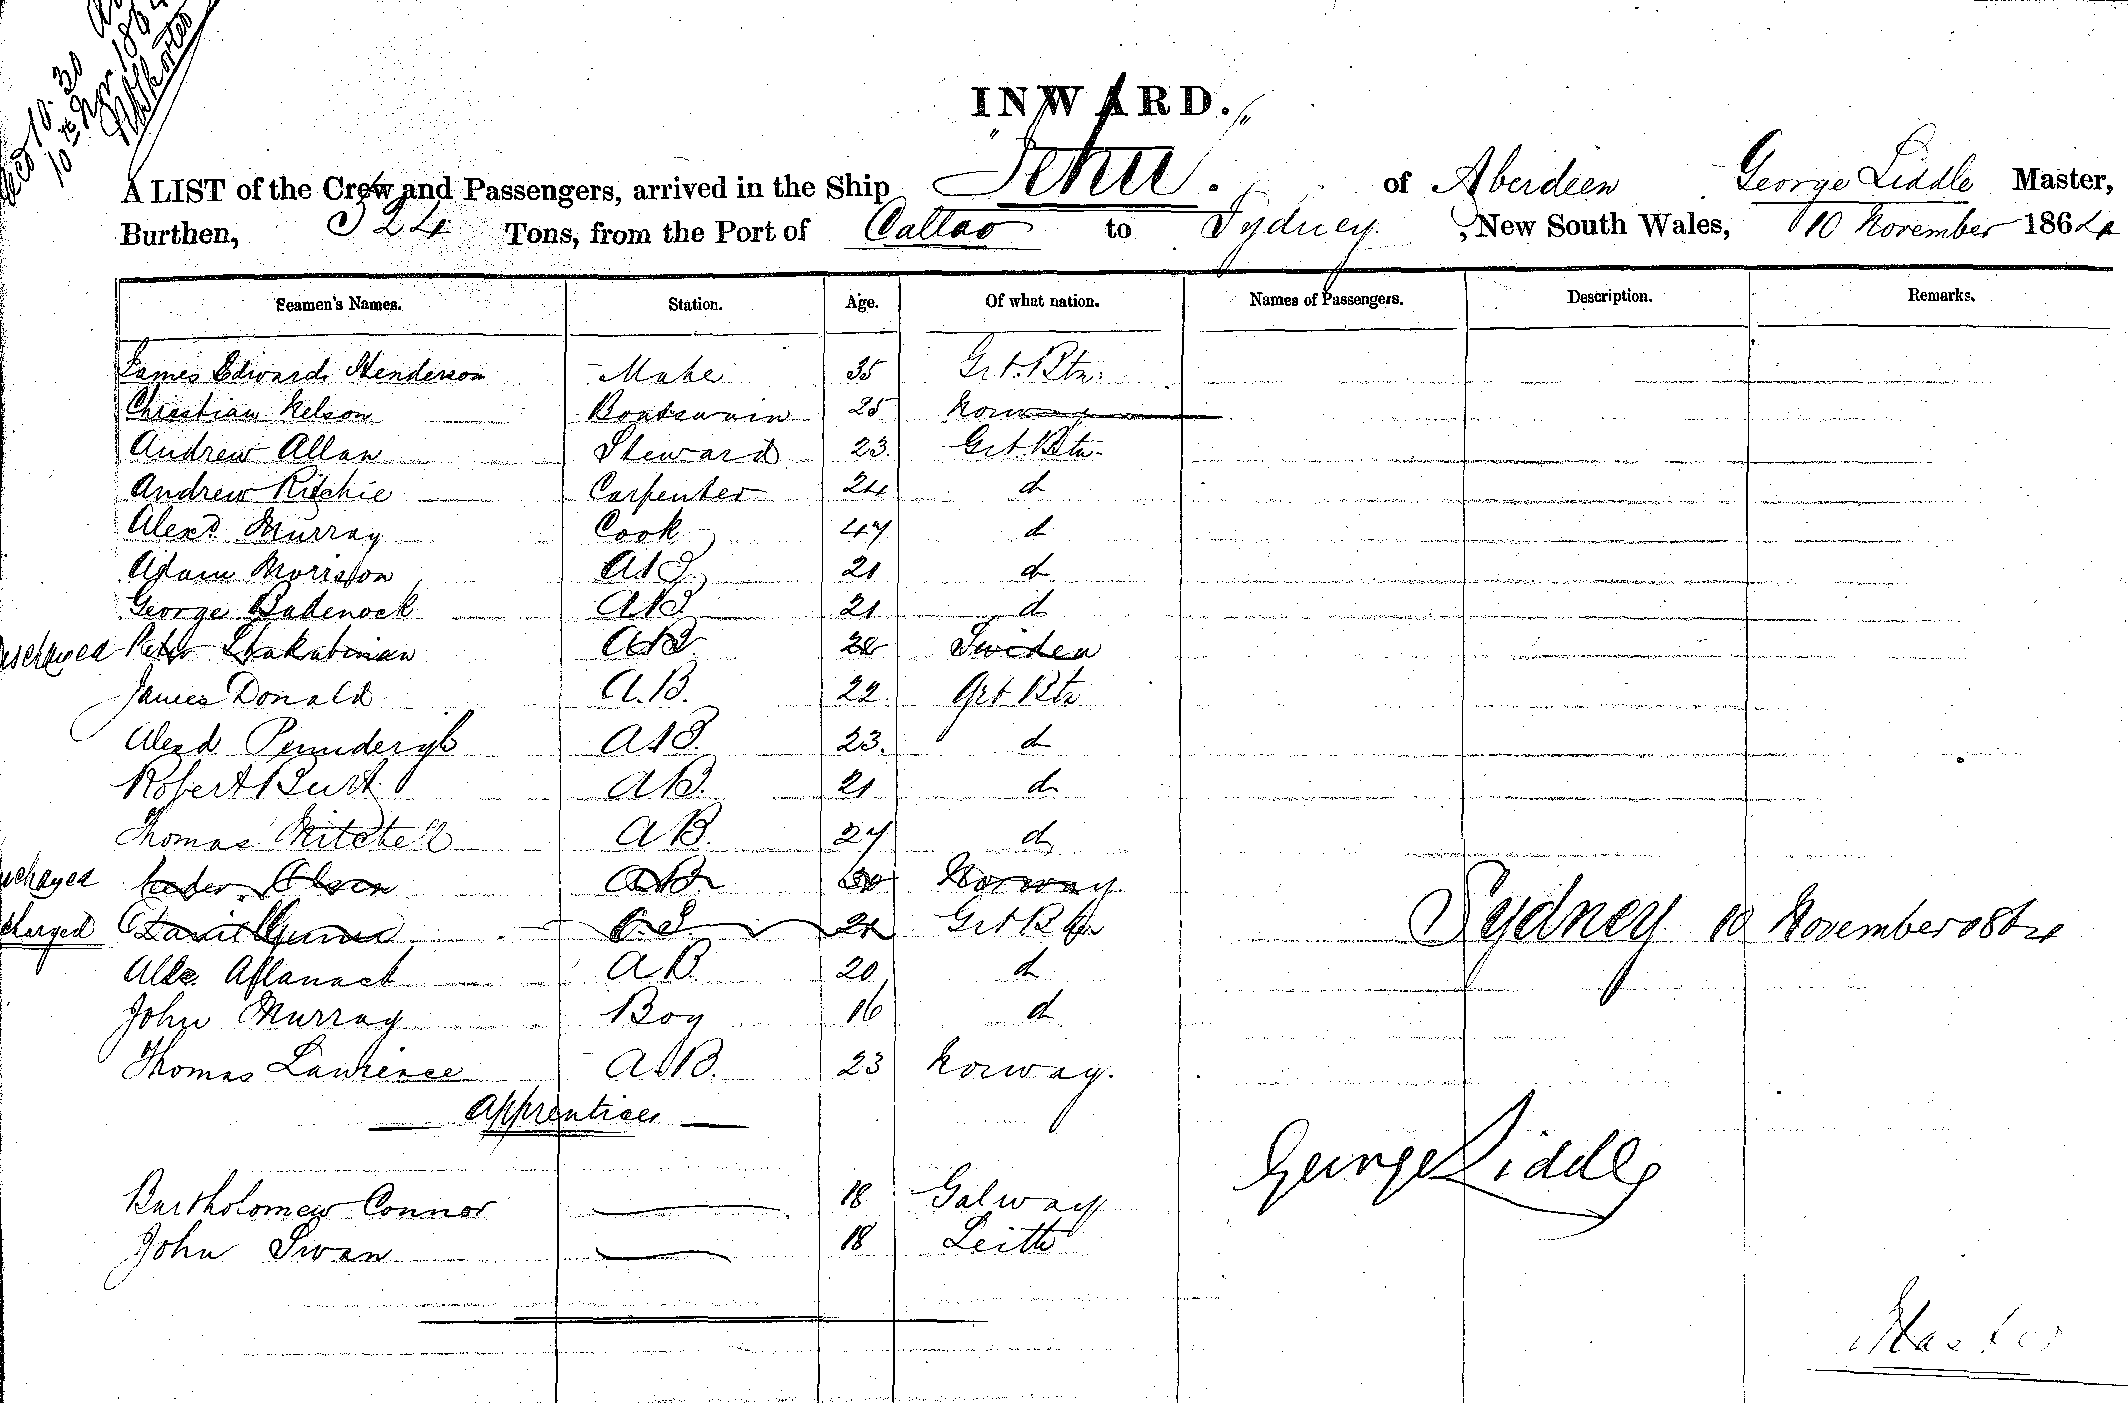 10.30
10th Nov. 1864
INWARD.
A LIST of the Crew and Passengers, arrived in the Ship "Jehu". of Aberdeen George Liddle Master,
Burthen, 324 Tons, from the Port of Callao to Sydney, New South Wales, 10 November 1864
Seamen's Names. Station. Age. Of what nation. Names of Passengers. Description. Remarks.
James Edwards Henderson Mate 35 Grt. Btn.
Christian Nelson Boatswain 25 Norway
Andrew Allan Steward 23. Grt. Btn.
Andrew Ritchie Carpenter 24 d
Alexd. Murray Cook 47 d
Adam Morrison AB 21 d
George Badenock AB 21 d
Peter AB Sweden
James Donald A.B. 22. Grt Btn
Alexd AB. 23. d
Robert Burt AB. 21 d
Thomas Mitchell AB. 27 d
Olsen AB Norway
charged David O.S. Grt Btn
Alex. Allanach AB 20 d
John Murray Boy 16 d
Thomas Lawrence A.B. 23 Norway.
Apprentices
Bartholomew Connor 18 Galway
John Swan 18 Leith
Sydney 10 November 1864
George Liddle
Master